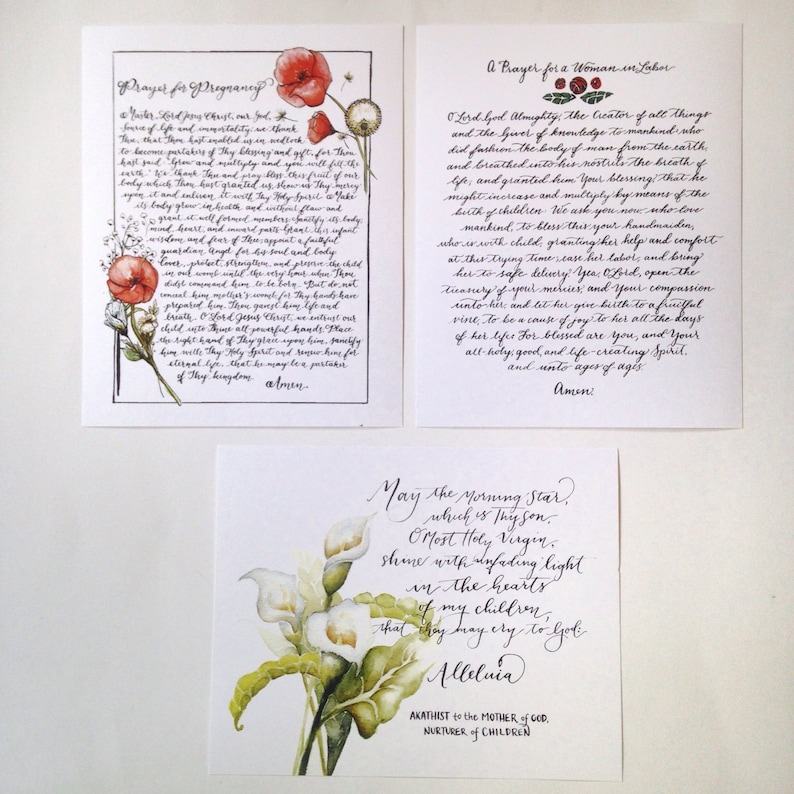 Prayer for Pregnancy
O Master, Lord Jesus Christ, our God,
Source of life and immortality, we thank
Thee, that Thou hast enabled us in wedlock
to become partakers of Thy blessing and gift, for Thou
hast said "Grow and multiply and you will fill the
earth." We thank Thee and pray, bless this fruit of our
body which Thou hast granted us; show us Thy mercy
upon it and enliven it with Thy Holy Spirit. Make
its body grow in health and without flaw and
grant it well formed members. Sanctify its body,
mind, heart, and inward parts. Grant this infant
wisdom and fear of Thee; appoint a faithful
guardian Angel for his soul and body
cover, protect, strengthen, and preserve the child
in our womb until the very hour when Thou
didst command him to be born. But do not
conceal him mother's womb, for Thy hands have
prepared him. Thou gavest him life and
breath. O Lord Jesus Christ, we entrust our
child into Thine all powerful hands. Place
the right hand of Thy grace upon him, sanctify
him with Thy Holy Spirit and renew him for
eternal life, that he may be a partaker
of Thy kingdom.
Amen.
A Prayer for a Woman in Labor
O Lord God Almighty, the Creator of all things
and the Giver of knowledge to mankind who
did fashion the body of man from the earth,
and breathed into his nostrils the breath of
life, and granted him Your blessing, that he
might increase and multiply by means of the
birth of children. We ask you now, who love
mankind, to bless this your handmaiden,
who is with child, granting her help and comfort
at this trying time; ease her labor, and bring
her to safe delivery. Yea, O Lord, open the
treasury of your mercies, and Your compassion
unto her, and let her give birth to a fruitful
vine, to be a cause of joy to her all the days
of her life: For blessed are You, and Your
all-holy, good, and life-creating Spirit,
and unto ages of ages.
Amen.
May the Morning Star,
which is Thy Son,
O Most Holy Virgin,
shine with unfading light
in the hearts
of my children,
that they may cry to God:
Alleluia
AKATHIST to the MOTHER of GOD,
NURTURER of CHILDREN